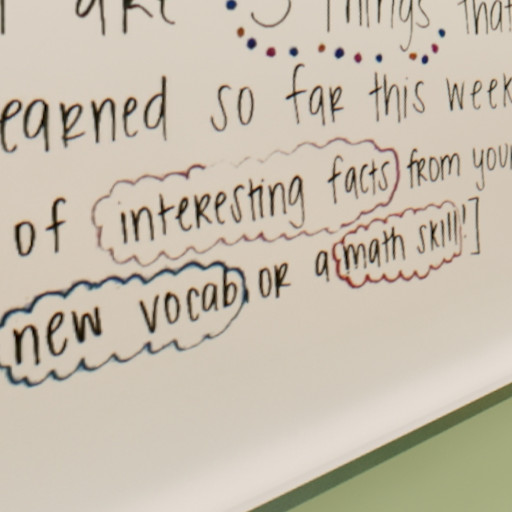 are 3 Things that
earned so far this week
of interesting facts from your
new vocab or a math skill!]